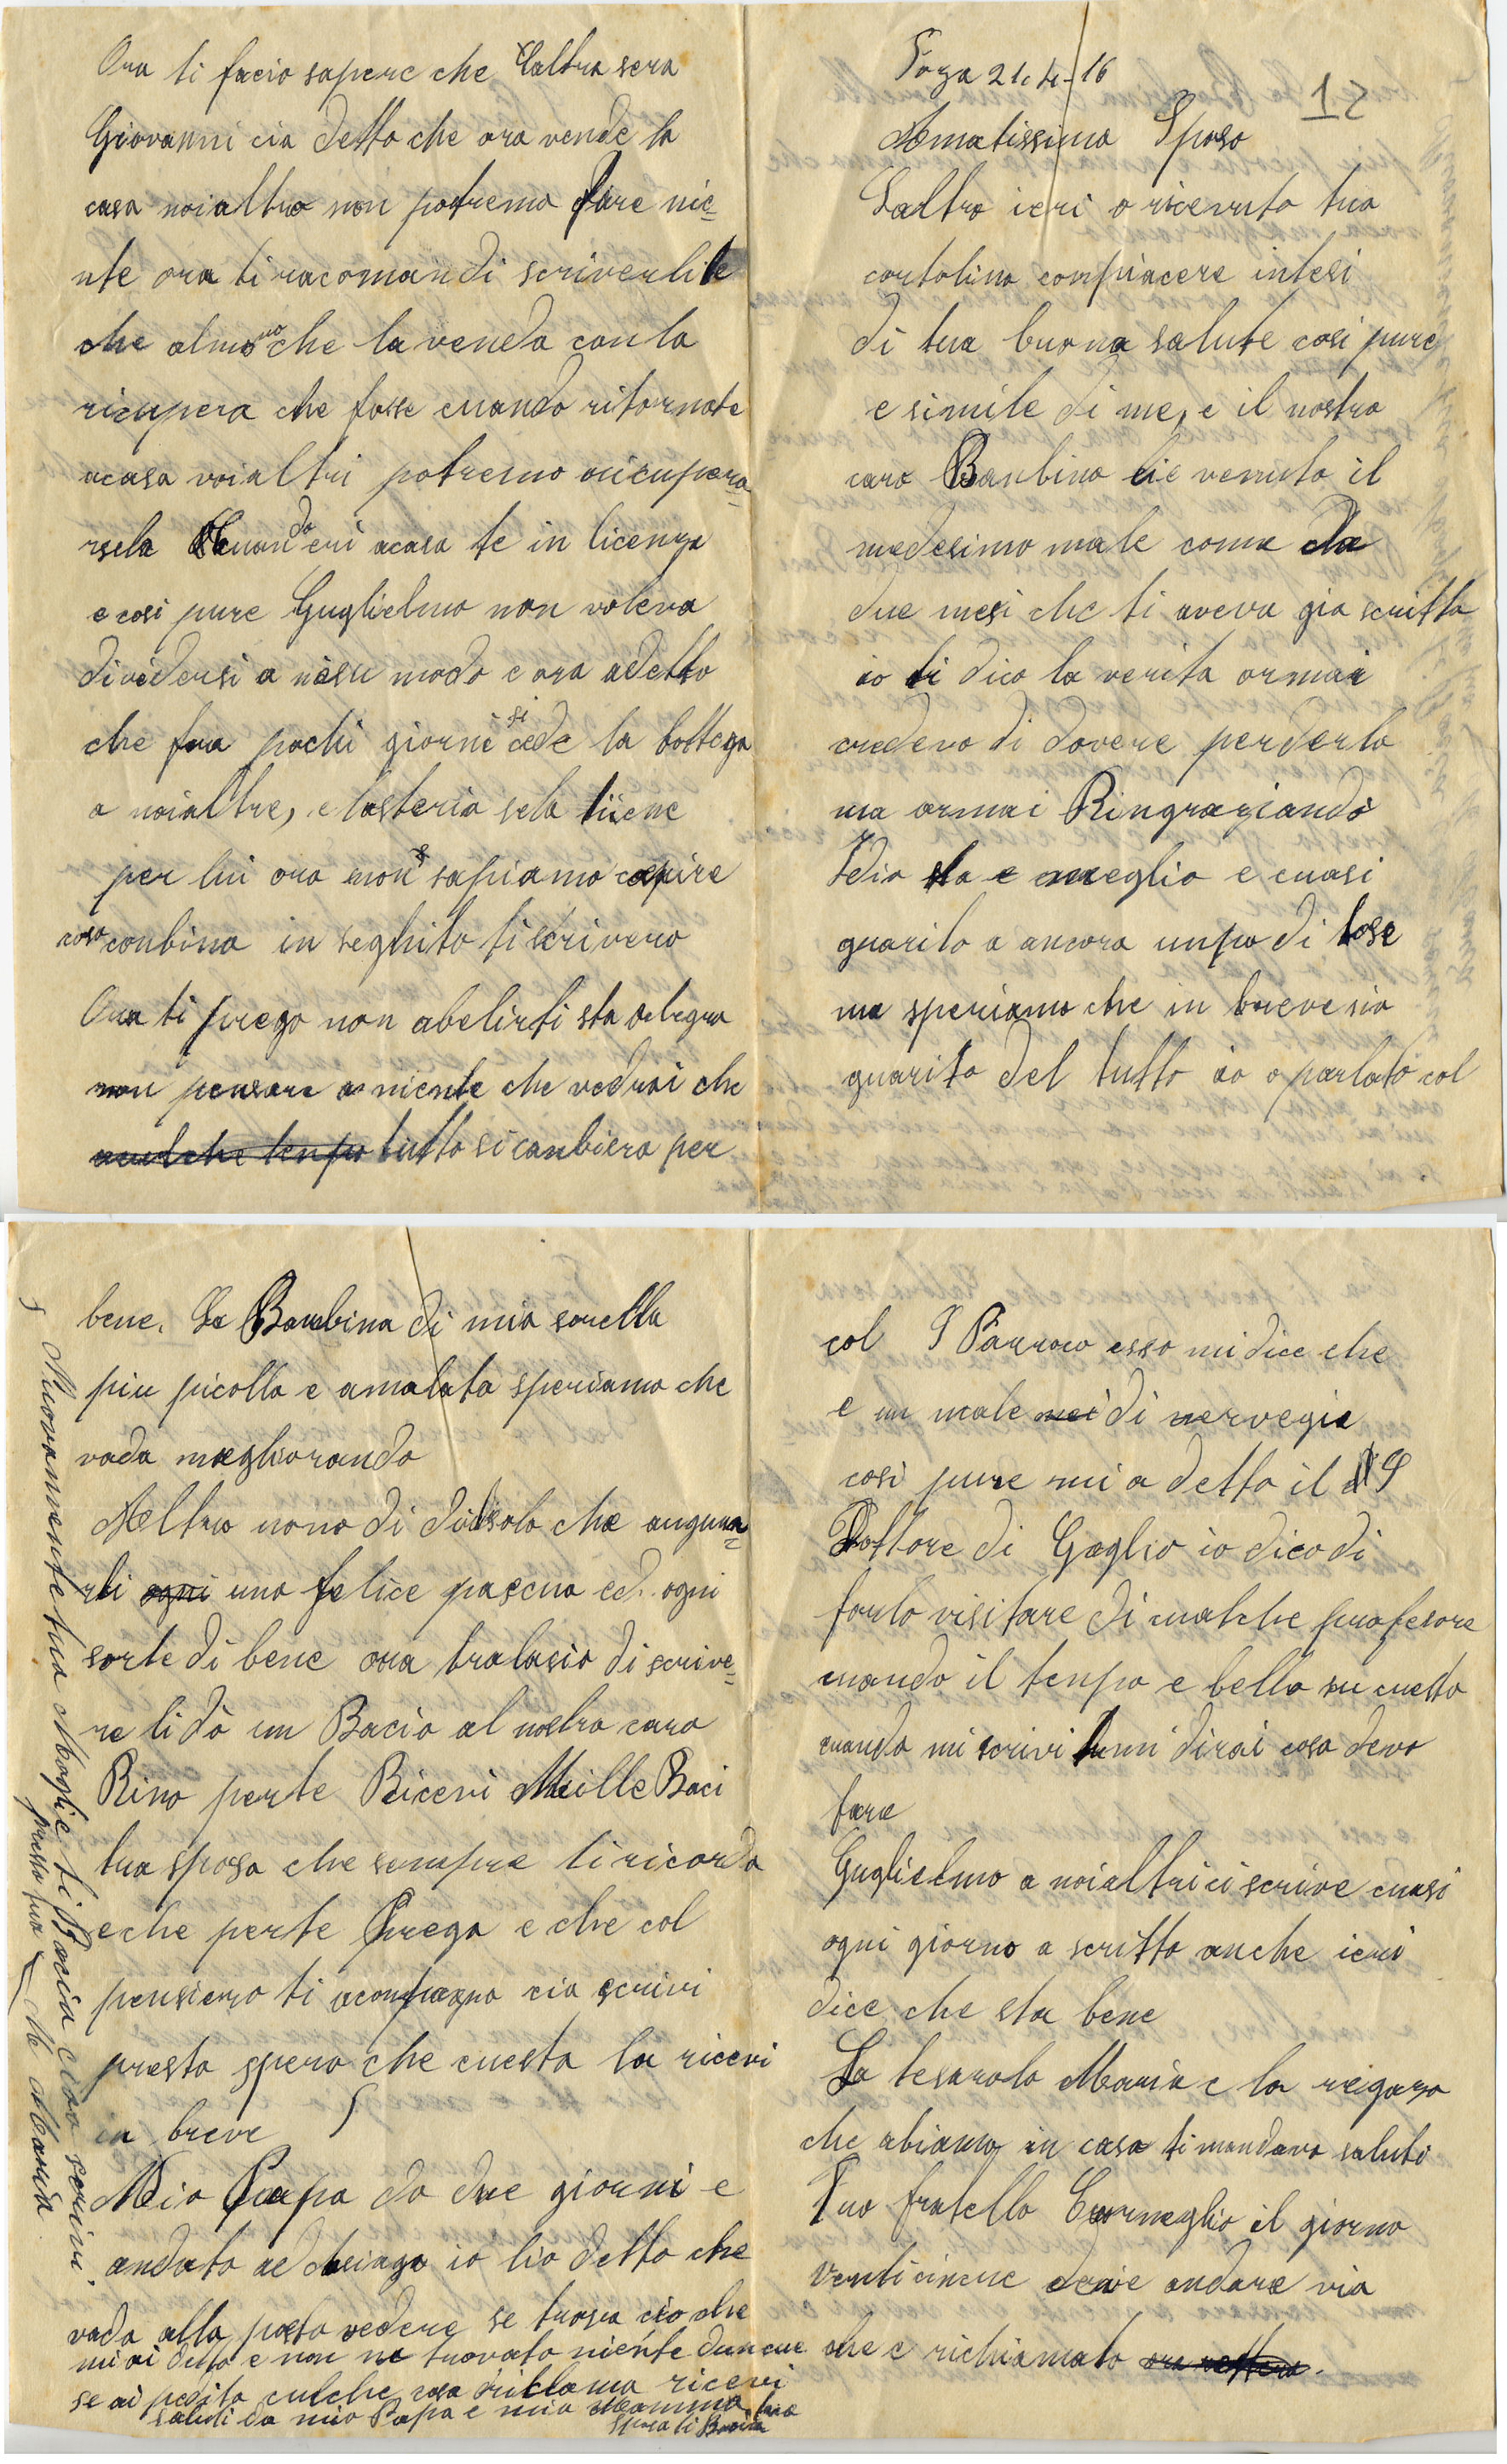 Foza 21-4-16
12
Amatissimo Sposo
Laltro ieri o ricevuto tua
cartolina conpiacere intesi
di tua buona salute cosi pure
e simile di me, e il nostro
caro Banbino lie venuto il
medesimo male come da
due mesi che ti aveva gia scritto
io ti dico la verita ormai
credevo di dovere perderlo
ma ormai Ringraziando
Idio sta e meglio e cuasi
guarito a ancora unpo di tose
ma speriamo che in breve sia
guarito del tutto io o parlato col
col S Parroco esso midice che
e un male nei di nervegia
cosi pure mi a detto il S
Dottore di Gaglio io dico di
farlo visitare di cualche profesore
cuando il tenpo e bello su cuesto
cuando mi scrivi tumi dirai cosa devo
fare
Guglielmo a noialtri ci scrive cuasi
ogni giorno a scritto anche ieri
dice che sta bene
La tesarolo Maria e la regaza
che abiamo in casa timandano saluti
Tuo fratello Corneglio il giorno
venticincue deve andare via
che e richiamato
Ora ti facio sapere che Laltra sera
Giovanni cia detto che ora vende la
casa noialtre non potremo fare nie=
nte ora ti racomandi scriverlile
che almeno che la venda con la
ricupera che fosse cuando ritornate
acasa voialtri potremo ricupera=
rsela Cuando eri acasa te in licenza
e cosi pure Guglielmo non voleva
dividersi a nisu modo e ora adetto
che fra pochi giorni si cede la bottega
a noialtre, e lasteria sela tiene
per lui ora non sapiamo capire
cosa conbina in seghito tiscrivero
Ora ti prego non abelirti sta alegro
non pensare a niente che vedrai che
cualche tenpo tutto si canbiera per
bene. La Banbina di mia sorella
piu picolla e amalata speriamo che
vada megliorando
Altro nono di dirti solo che augura=
rti ogni una felice pascua ed ogni
sorte di bene ora tralasio di scrive=
re lidò un Bacio al nostro caro
Rino perte Ricevi Mille Baci
tua sposa che sempre ti ricorda
eche perte Prega e che col
pensiero ti acompagna cia scrivi
presto spero che cuesta la ricevi
in breve
Mio Papa da due giorni e
andato ae io lio detto che
vada alla posta vedere se trova cio che
mi ai detto e non na trovato niente duncue
se ai pedito culche cosa riclama ricevi
saluti da mio Papa e mia Mamma tua
sposa ti Bacia
Nuovamente tua Moglie ti Bacia ciao scrivi.
presto tua M Maria